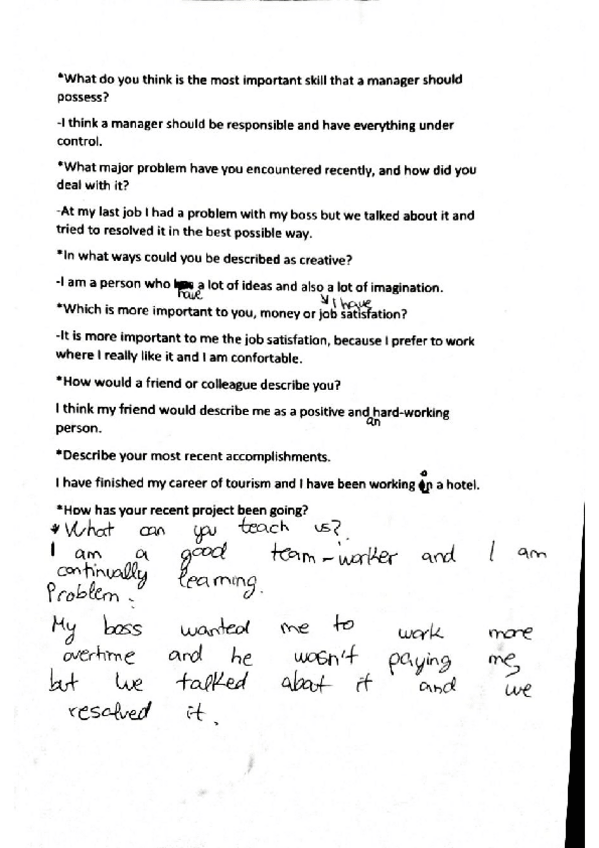 *What do you think is the most important skill that a manager should
possess?
-I think a manager should be responsible and have everything under
control.
*What major problem have you encountered recently, and how did you
deal with it?
-At my last job I had a problem with my boss but we talked about it and
tried to resolved it in the best possible way.
*In what ways could you be described as creative?
-I am a person who has a lot of ideas and also a lot of imagination.
have
I have
*Which is more important to you, money or job satisfation?
-It is more important to me the job satisfation, because I prefer to work
where I really like it and I am confortable.
*How would a friend or colleague describe you?
I think my friend would describe me as a positive and hard-working
an
person.
*Describe your most recent accomplishments.
I have finished my career of tourism and I have been working in a hotel.
*How has your recent project been going?
*What can you teach us?.
I am a good team-worker and I am
continually learning.
Problem:
My boss wanted me to work more
overtime and he wasn't paying me,
but we talked about it and we
resolved it.